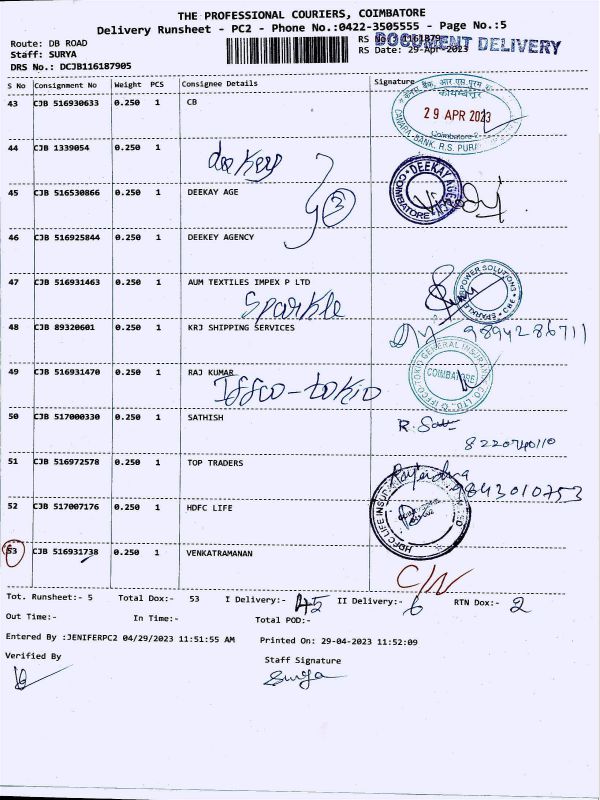 THE PROFESSIONAL COURIERS, COIMBATORE
Delivery Runsheet - PC2 - Phone No.:0422-3505555 - Page No.:5
Route: DB ROAD
Staff: SURYA
DRS No.: DCJB116187905
RS Date: 29-Apr-2023
DOCUMENT DELIVERY
S No Consignment No Weight PCS Consignee Details Signature
43 CJB 516930633 0.250 1 CB
CANARA BANK, R.S. PURAM
29 APR 2023
44 CJB 1339054 0.250 1
deekey
45 CJB 516530866 0.250 1 DEEKAY AGE
3
DEEKAY AGENCY COIMBATORE
46 CJB 516925844 0.250 1 DEEKEY AGENCY
47 CJB 516931463 0.250 1 AUM TEXTILES IMPEX P LTD
Sparkle
POWER SOLUTIONS CBE
48 CJB 89320601 0.250 1 KRJ SHIPPING SERVICES
9894286711
49 CJB 516931470 0.250 1 RAJ KUMAR
Iffco-tokio
IFFCO TOKIO GENERAL INSURANCE CO. LTD.
COIMBATORE
50 CJB 517000330 0.250 1 SATHISH
8220740110
51 CJB 516972578 0.250 1 TOP TRADERS
9843010753
52 CJB 517007176 0.250 1 HDFC LIFE
HDFC LIFE
53 CJB 516931738 0.250 1 VENKATRAMANAN
C/N
Tot. Runsheet:- 5 Total Dox:- 53 I Delivery:- 45 II Delivery:- 6 RTN Dox:- 2
Out Time:- In Time:- Total POD:-
Entered By :JENIFERPC2 04/29/2023 11:51:55 AM Printed On: 29-04-2023 11:52:09
Verified By Staff Signature
Surya